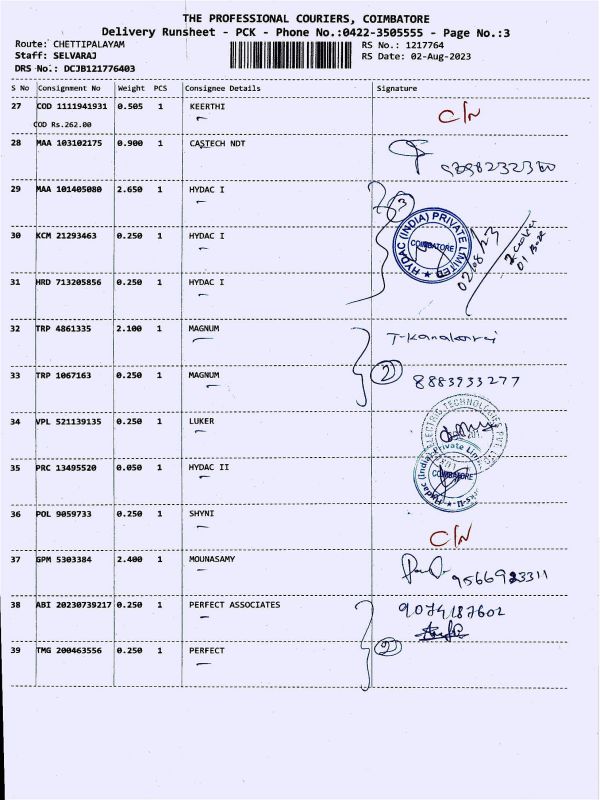 THE PROFESSIONAL COURIERS, COIMBATORE
Delivery Runsheet - PCK - Phone No.:0422-3505555 - Page No.:3
Route: CHETTIPALAYAM RS No.: 1217764
Staff: SELVARAJ RS Date: 02-Aug-2023
DRS No.: DCJB121776403
S No Consignment No Weight PCS Consignee Details Signature
27 COD 1111941931 0.505 1 KEERTHI C/N
COD Rs.262.00
28 MAA 103102175 0.900 1 CASTECH NDT
29 MAA 101405080 2.650 1 HYDAC I
3
HYDAC (INDIA) PRIVATE LIMITED
COIMBATORE
02/08/23
30 KCM 21293463 0.250 1 HYDAC I
31 HRD 713205856 0.250 1 HYDAC I
32 TRP 4861335 2.100 1 MAGNUM
33 TRP 1067163 0.250 1 MAGNUM 2 8883933277
34 VPL 521139135 0.250 1 LUKER
35 PRC 13495520 0.050 1 HYDAC II
Hydac (India) Private Limi
COIMBATORE
36 POL 9059733 0.250 1 SHYNI C/N
37 GPM 5303384 2.400 1 MOUNASAMY 9566923311
38 ABI 20230739217 0.250 1 PERFECT ASSOCIATES 9074187602
39 TMG 200463556 0.250 1 PERFECT 2